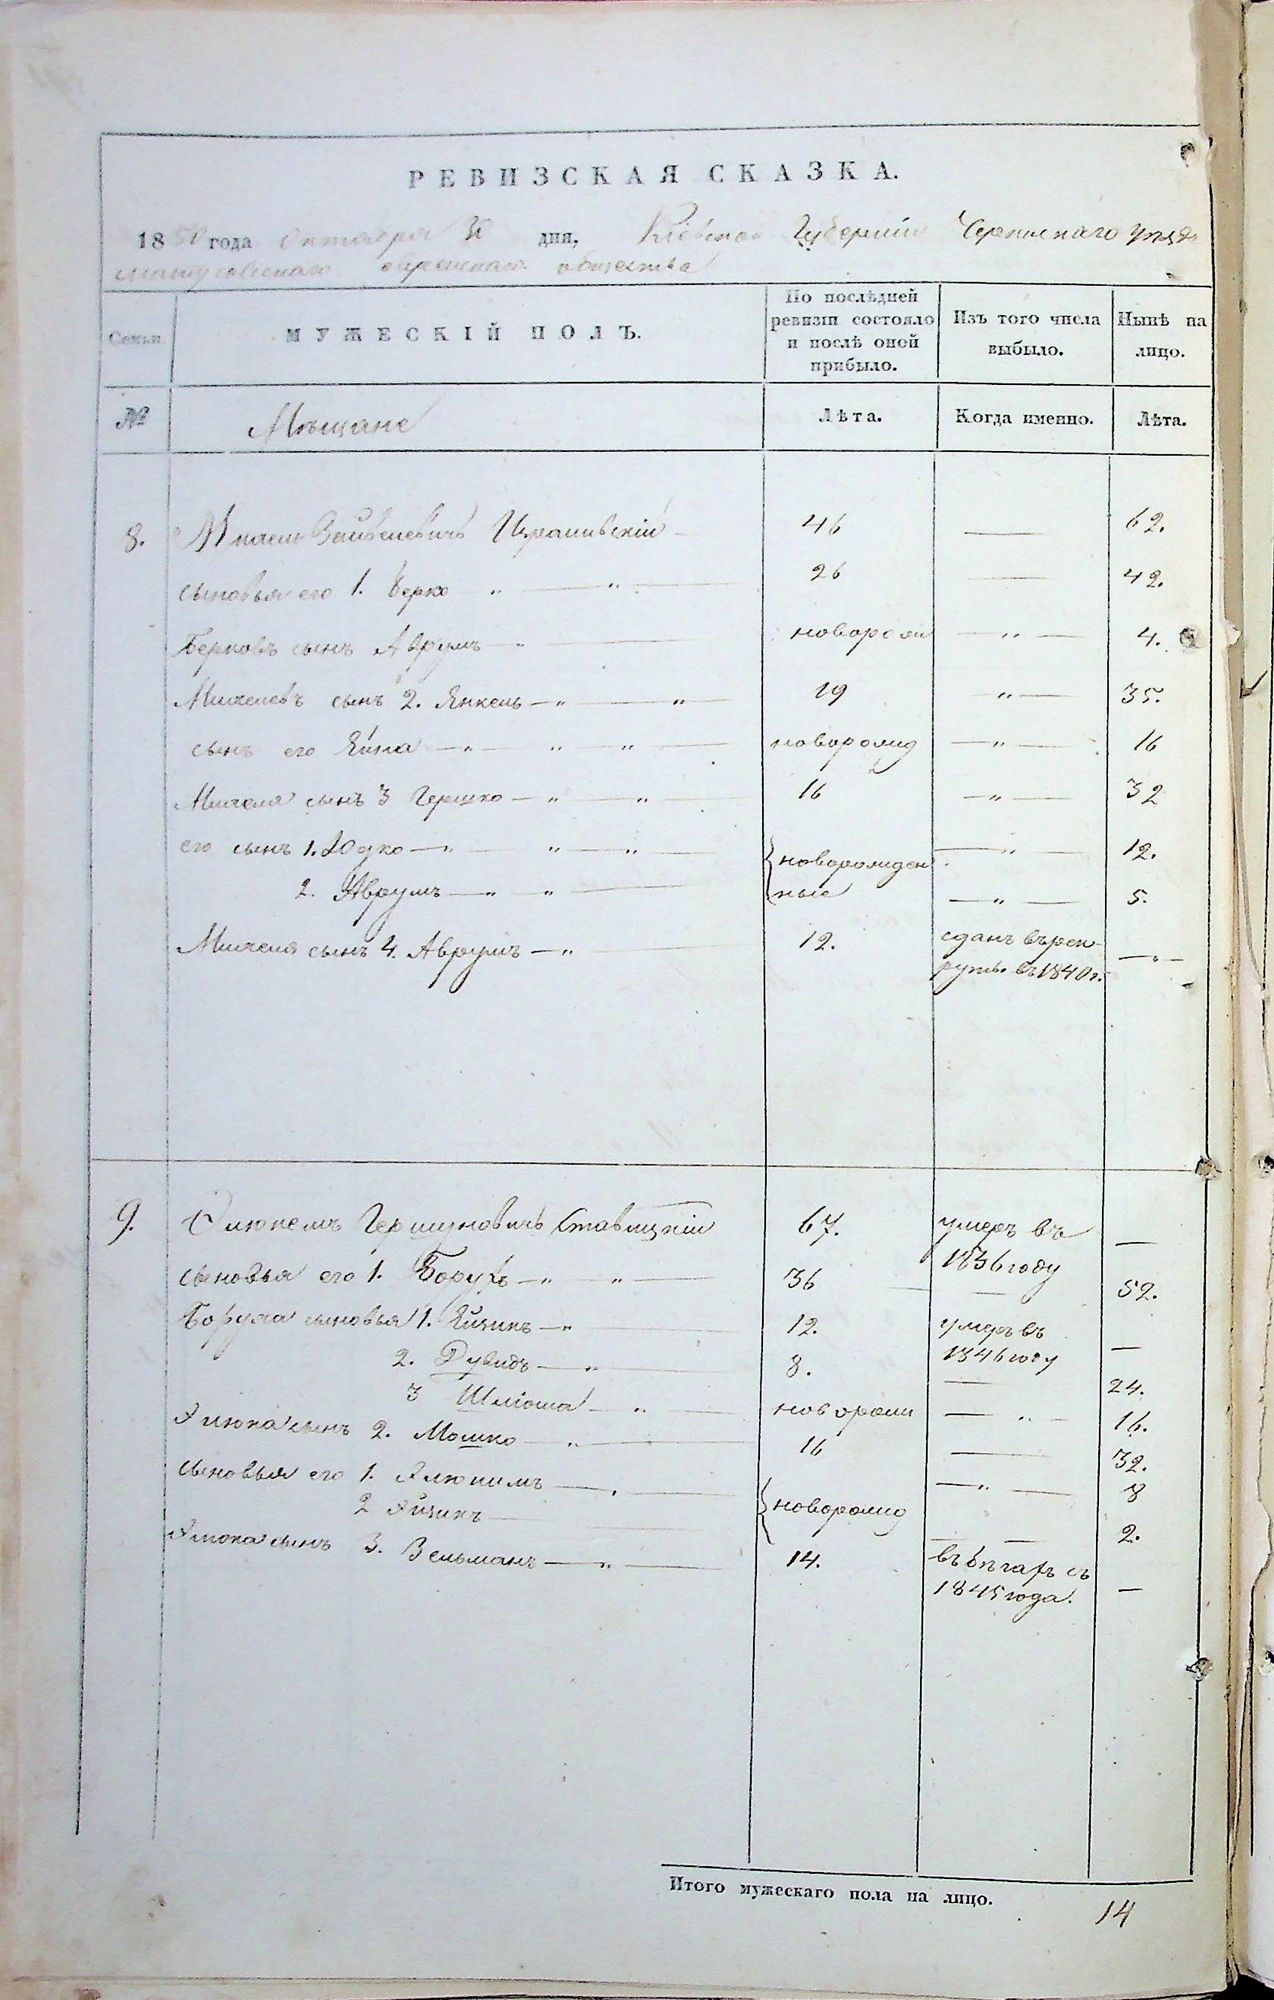 РЕВИЗСКАЯ СКАЗКА.
1850 года Октября дня, Кіевской Губерніи Черкаскаго уѣзда
еврейскаго общества
Семьи МУЖЕСКІЙ ПОЛЪ. По послѣдней ревизіи состояло и послѣ оной прибыло. Изъ того числа выбыло. Нынѣ на лицо.
№ Мѣщане Лѣта. Когда именно. Лѣта.
8. 46 — 62.
сыновья его 1. Берко — " — " — 26 — 42.
Берковъ сынъ Аврумъ — " — новорож — " — 4.
Михелевъ сынъ 2. Янкель — " — " 19 — " — 35.
сынъ его — " — " — " — новорожд — " — 16
Михеля сынъ 3 Гершко — " — " — 16 — " — 32
его сынъ 1. Юдко — " — " — " — новорожден — " 12.
2. Аврумъ — " — " — ные — " — 5.
Михеля сынъ 4. Аврумъ — " — 12. сданъ въ рек- — " —
руты въ 1840 г.
9. Гершуновичъ Ставицкій 67. умеръ въ —
1836 году
сыновья его 1. Борухъ — " — " — 36 — 52.
Боруха сыновья 1. Айзикъ — " — 12. умеръ въ —
1846 году
2. Дувидъ — " — 8. — 24.
3 Шліома — " — новорожд — " — 16.
сынъ 2. Мошко — " — 16 — 32.
сыновья его 1. — " — новорожд — " — 8
2 Айзикъ — — 2.
сынъ 3. Зельманъ — " — 14. въ бѣгахъ съ —
1845 года.
Итого мужескаго пола на лицо. 14